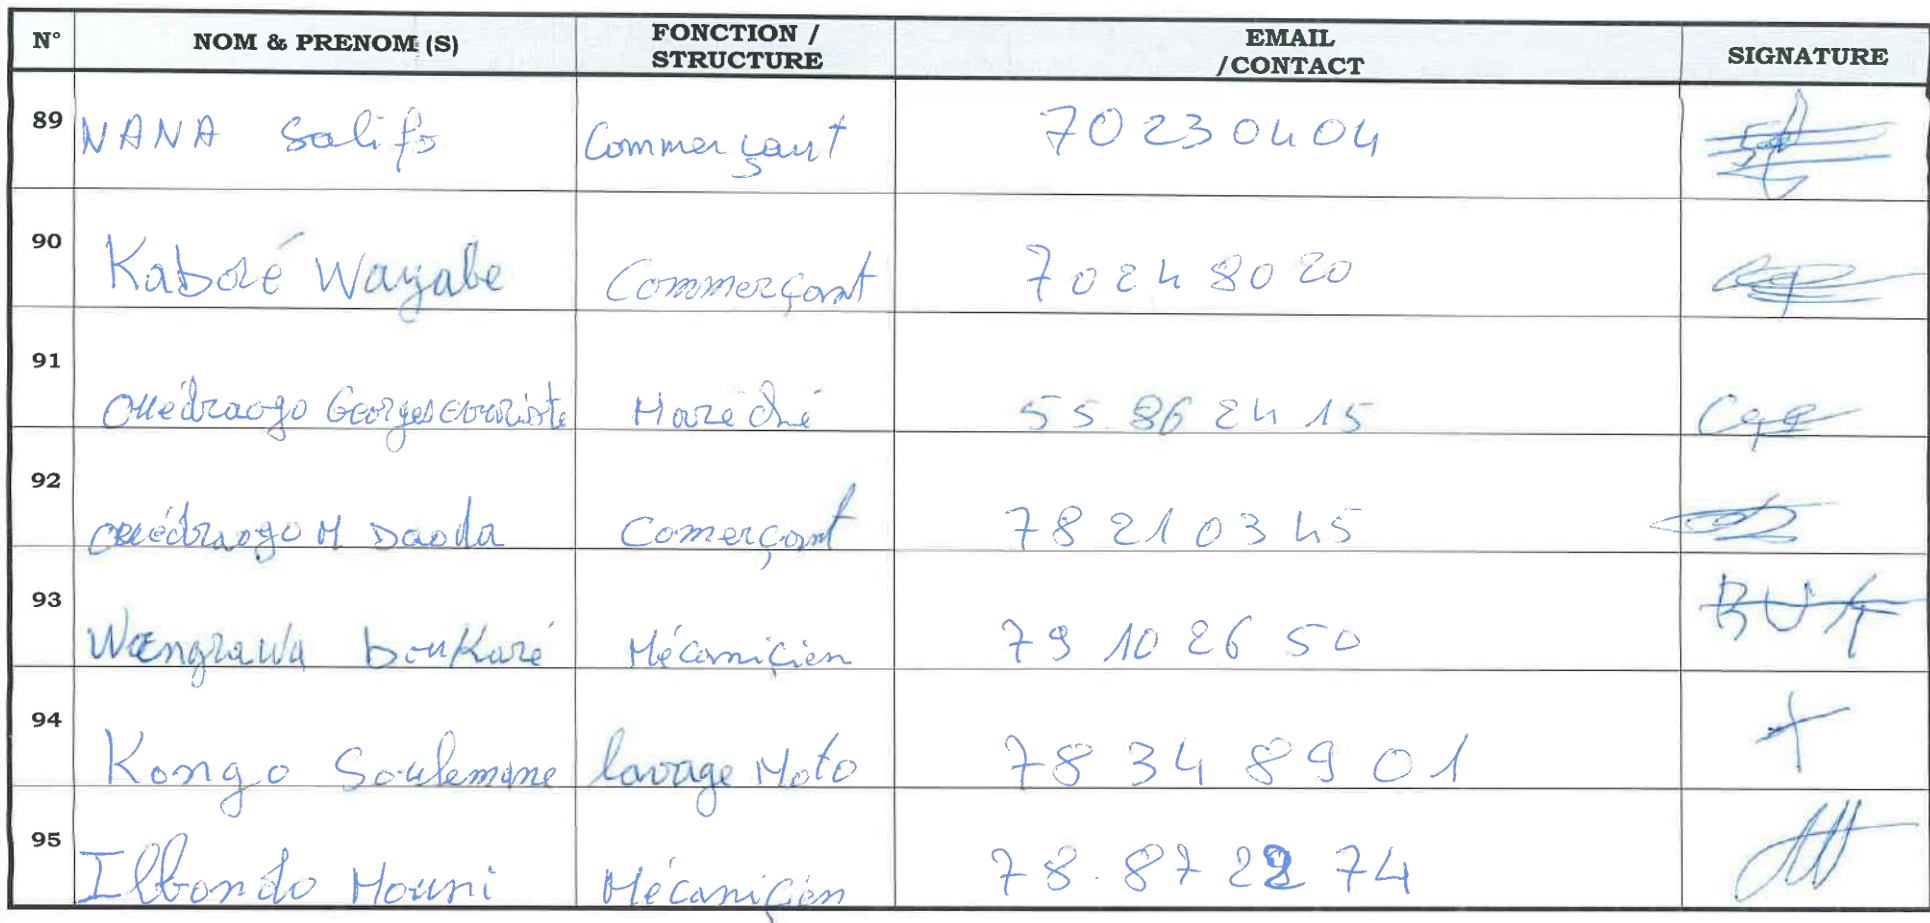 N° NOM & PRENOM (S) FONCTION / STRUCTURE EMAIL /CONTACT SIGNATURE
89 NANA Salifo Commerçant 70 23 04 04
90 Kaboré Wayabe Commerçant 70 24 80 20
91 Ouédraogo Georges Evariste Maréché 55 86 24 15
92 Ouédraogo M Daoda Comerçant 78 21 03 45
93 boukaré Mécaniçien 79 10 26 50
94 Kongo Soulemane lavage Moto 78 34 89 01
95 Ilbondo Mouni Mécaniçien 78.87 22 74